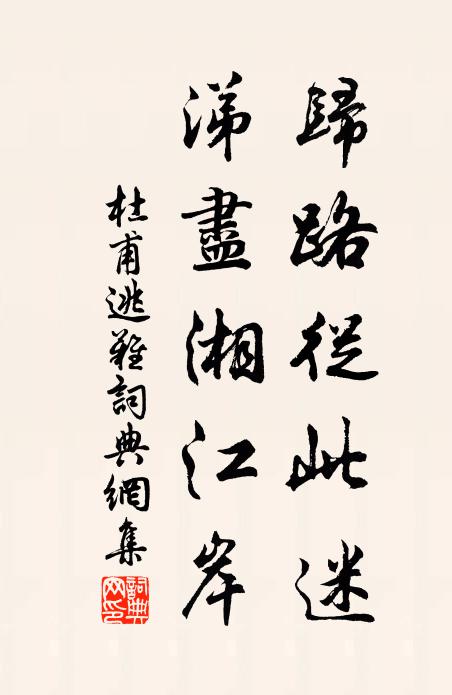 歸路從此迷
涕盡湘江岸
杜甫逃難詞典網集
詞典網印